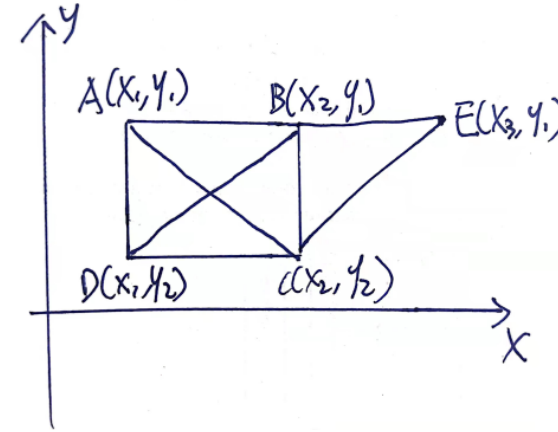 y
A(x₁,y₁)
B(x₂,y₁)
E(x₃,y₁)
D(x₁,y₂)
C(x₂,y₂)
X